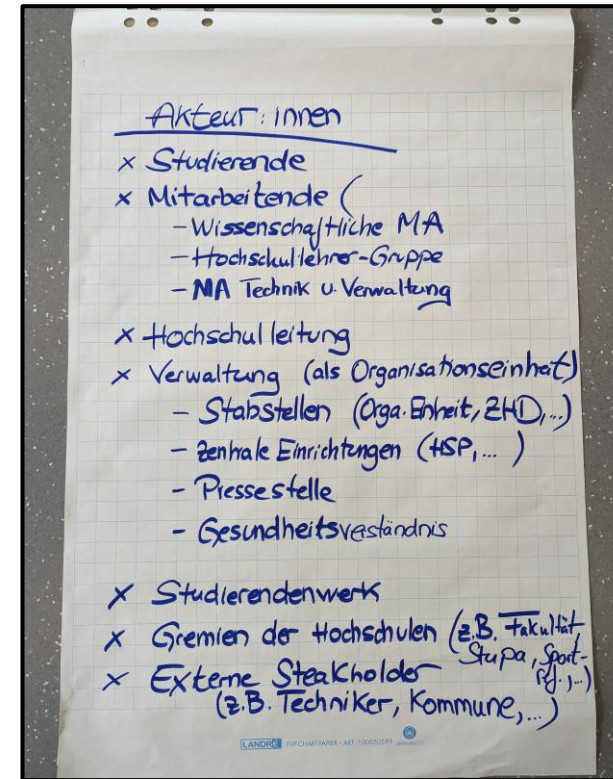 Akteur:innen
x Studierende
x Mitarbeitende (
- Wissenschaftliche MA
- Hochschullehrer-Gruppe
- MA Technik u. Verwaltung
x Hochschulleitung
x Verwaltung (als Organisationseinheit)
- Stabstellen (Orga.Enheit, ZHD,...)
- Zentrale Einrichtungen (HSP,... )
- Pressestelle
- Gesundheitsverständnis
x Studierendenwerk
x Gremien der Hochschulen (z.B. Fakultät,
Stupa, Sport-
Rf.,...)
x Externe Steakholder
(z.B. Techniker, Kommune,...)
LANDRÉ FLIP-CHART-PAPIER · ART. 100050589